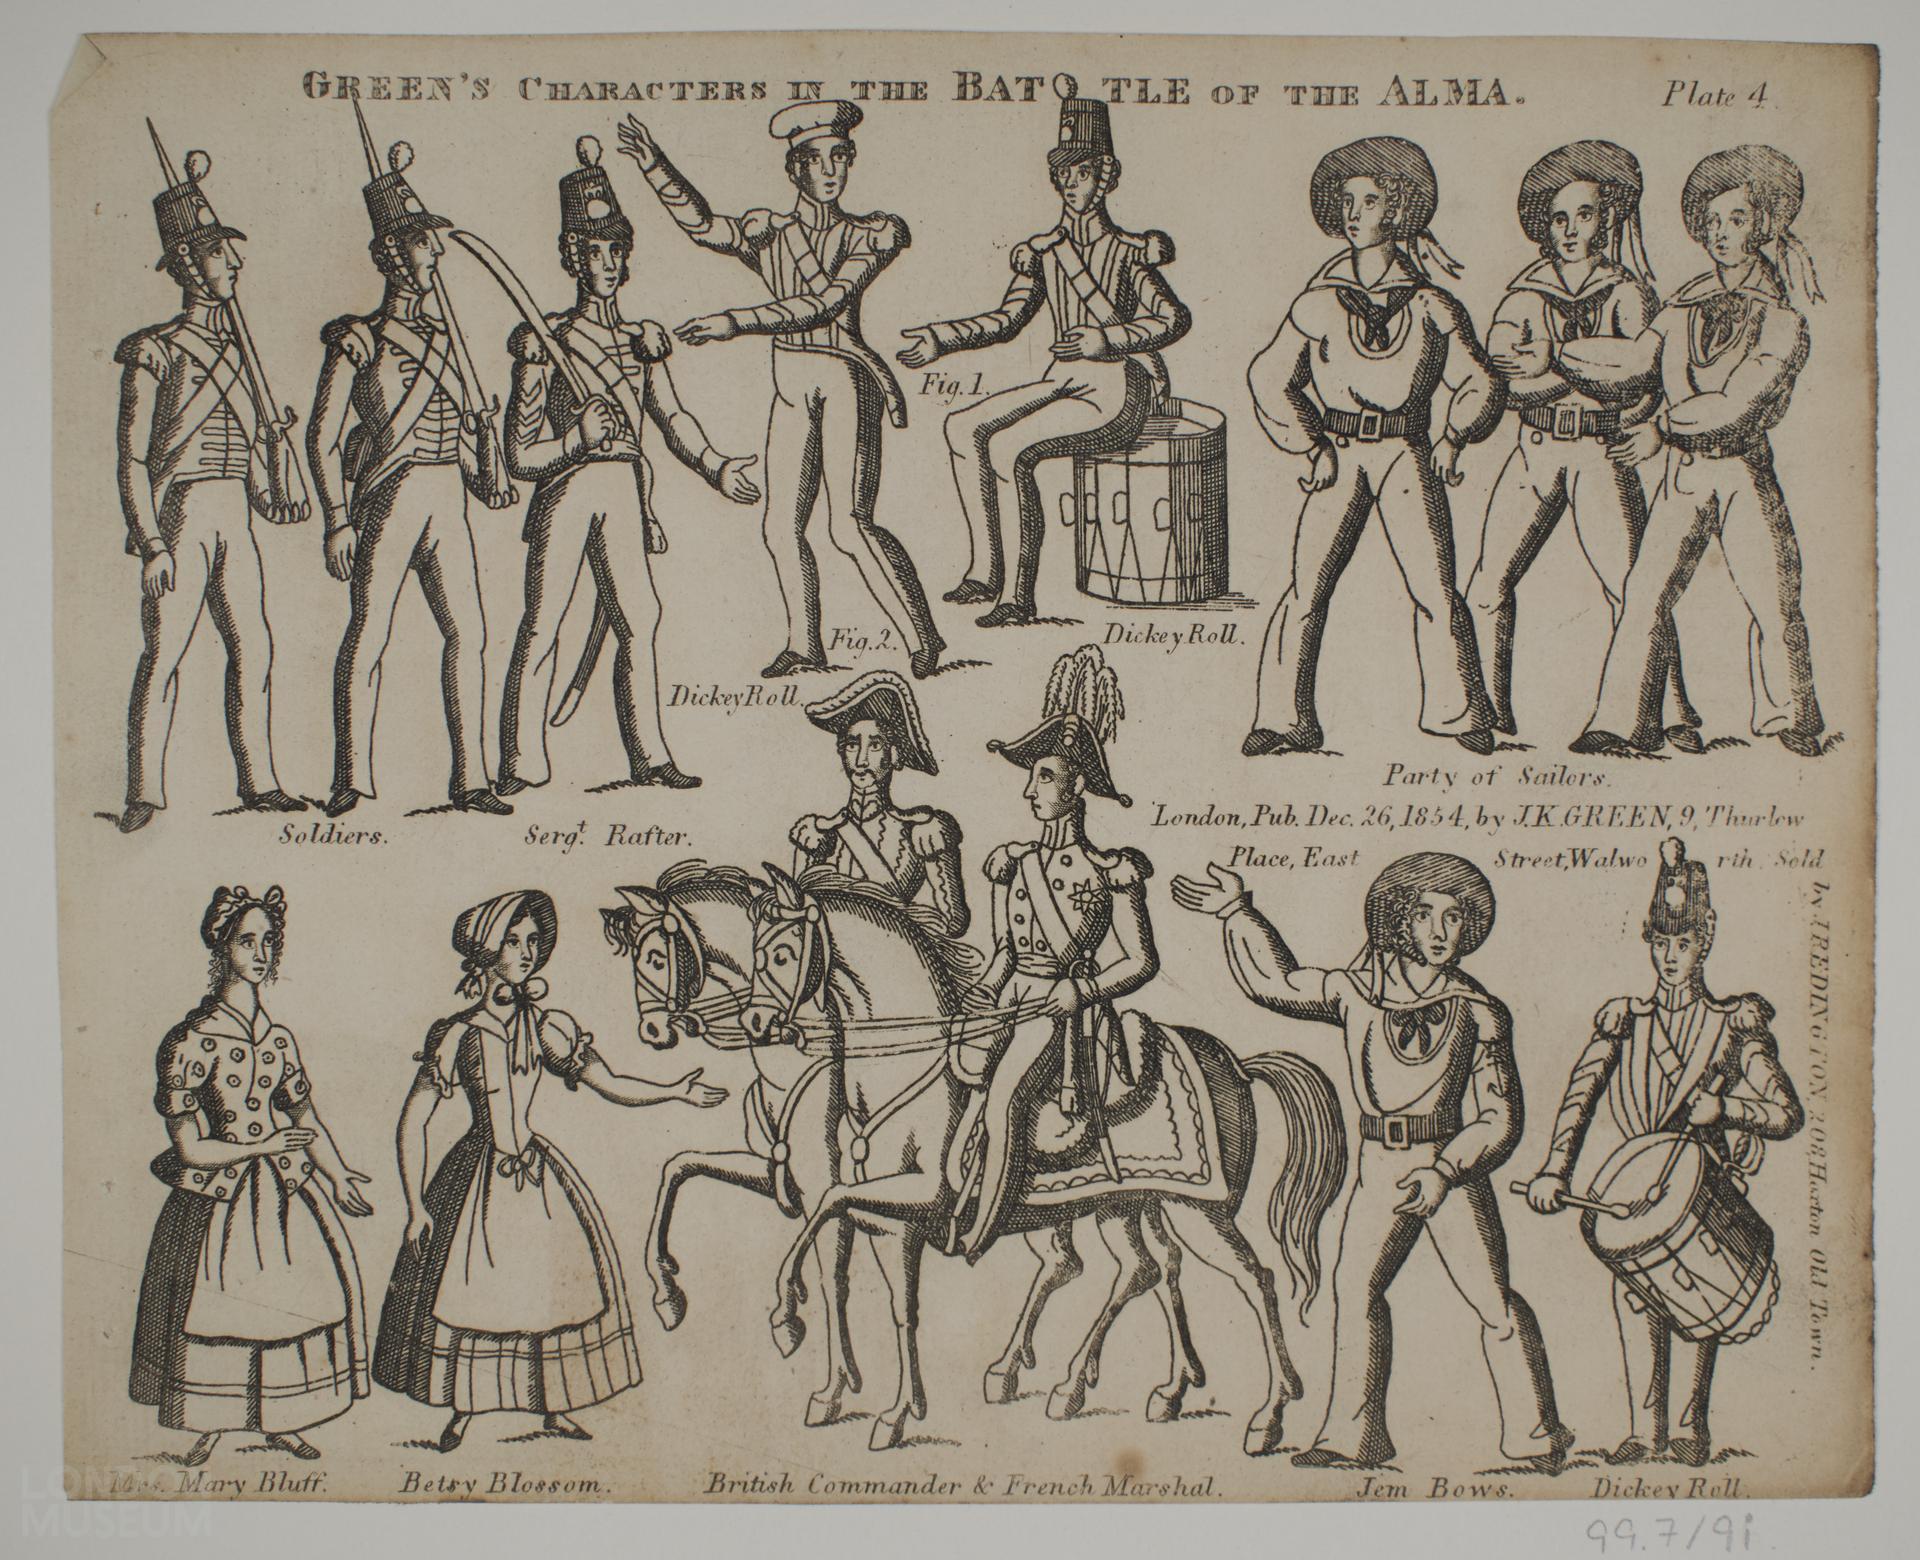 GREEN'S CHARACTERS IN THE BATTLE OF THE ALMA.
Plate 4.
Fig. 1.
Fig. 2.
Dickey Roll.
Dickey Roll.
Party of Sailors.
Soldiers.
Sergt. Rafter.
London, Pub. Dec. 26, 1854, by J.K. GREEN, 9, Thurlow
Place, East Street, Walworth. Sold
by J. REDINGTON 208 Hoxton Old Town.
Mrs. Mary Bluff.
Betsy Blossom.
British Commander & French Marshal.
Jem Bows.
Dickey Roll.
LONDON
MUSEUM
99.7/9i